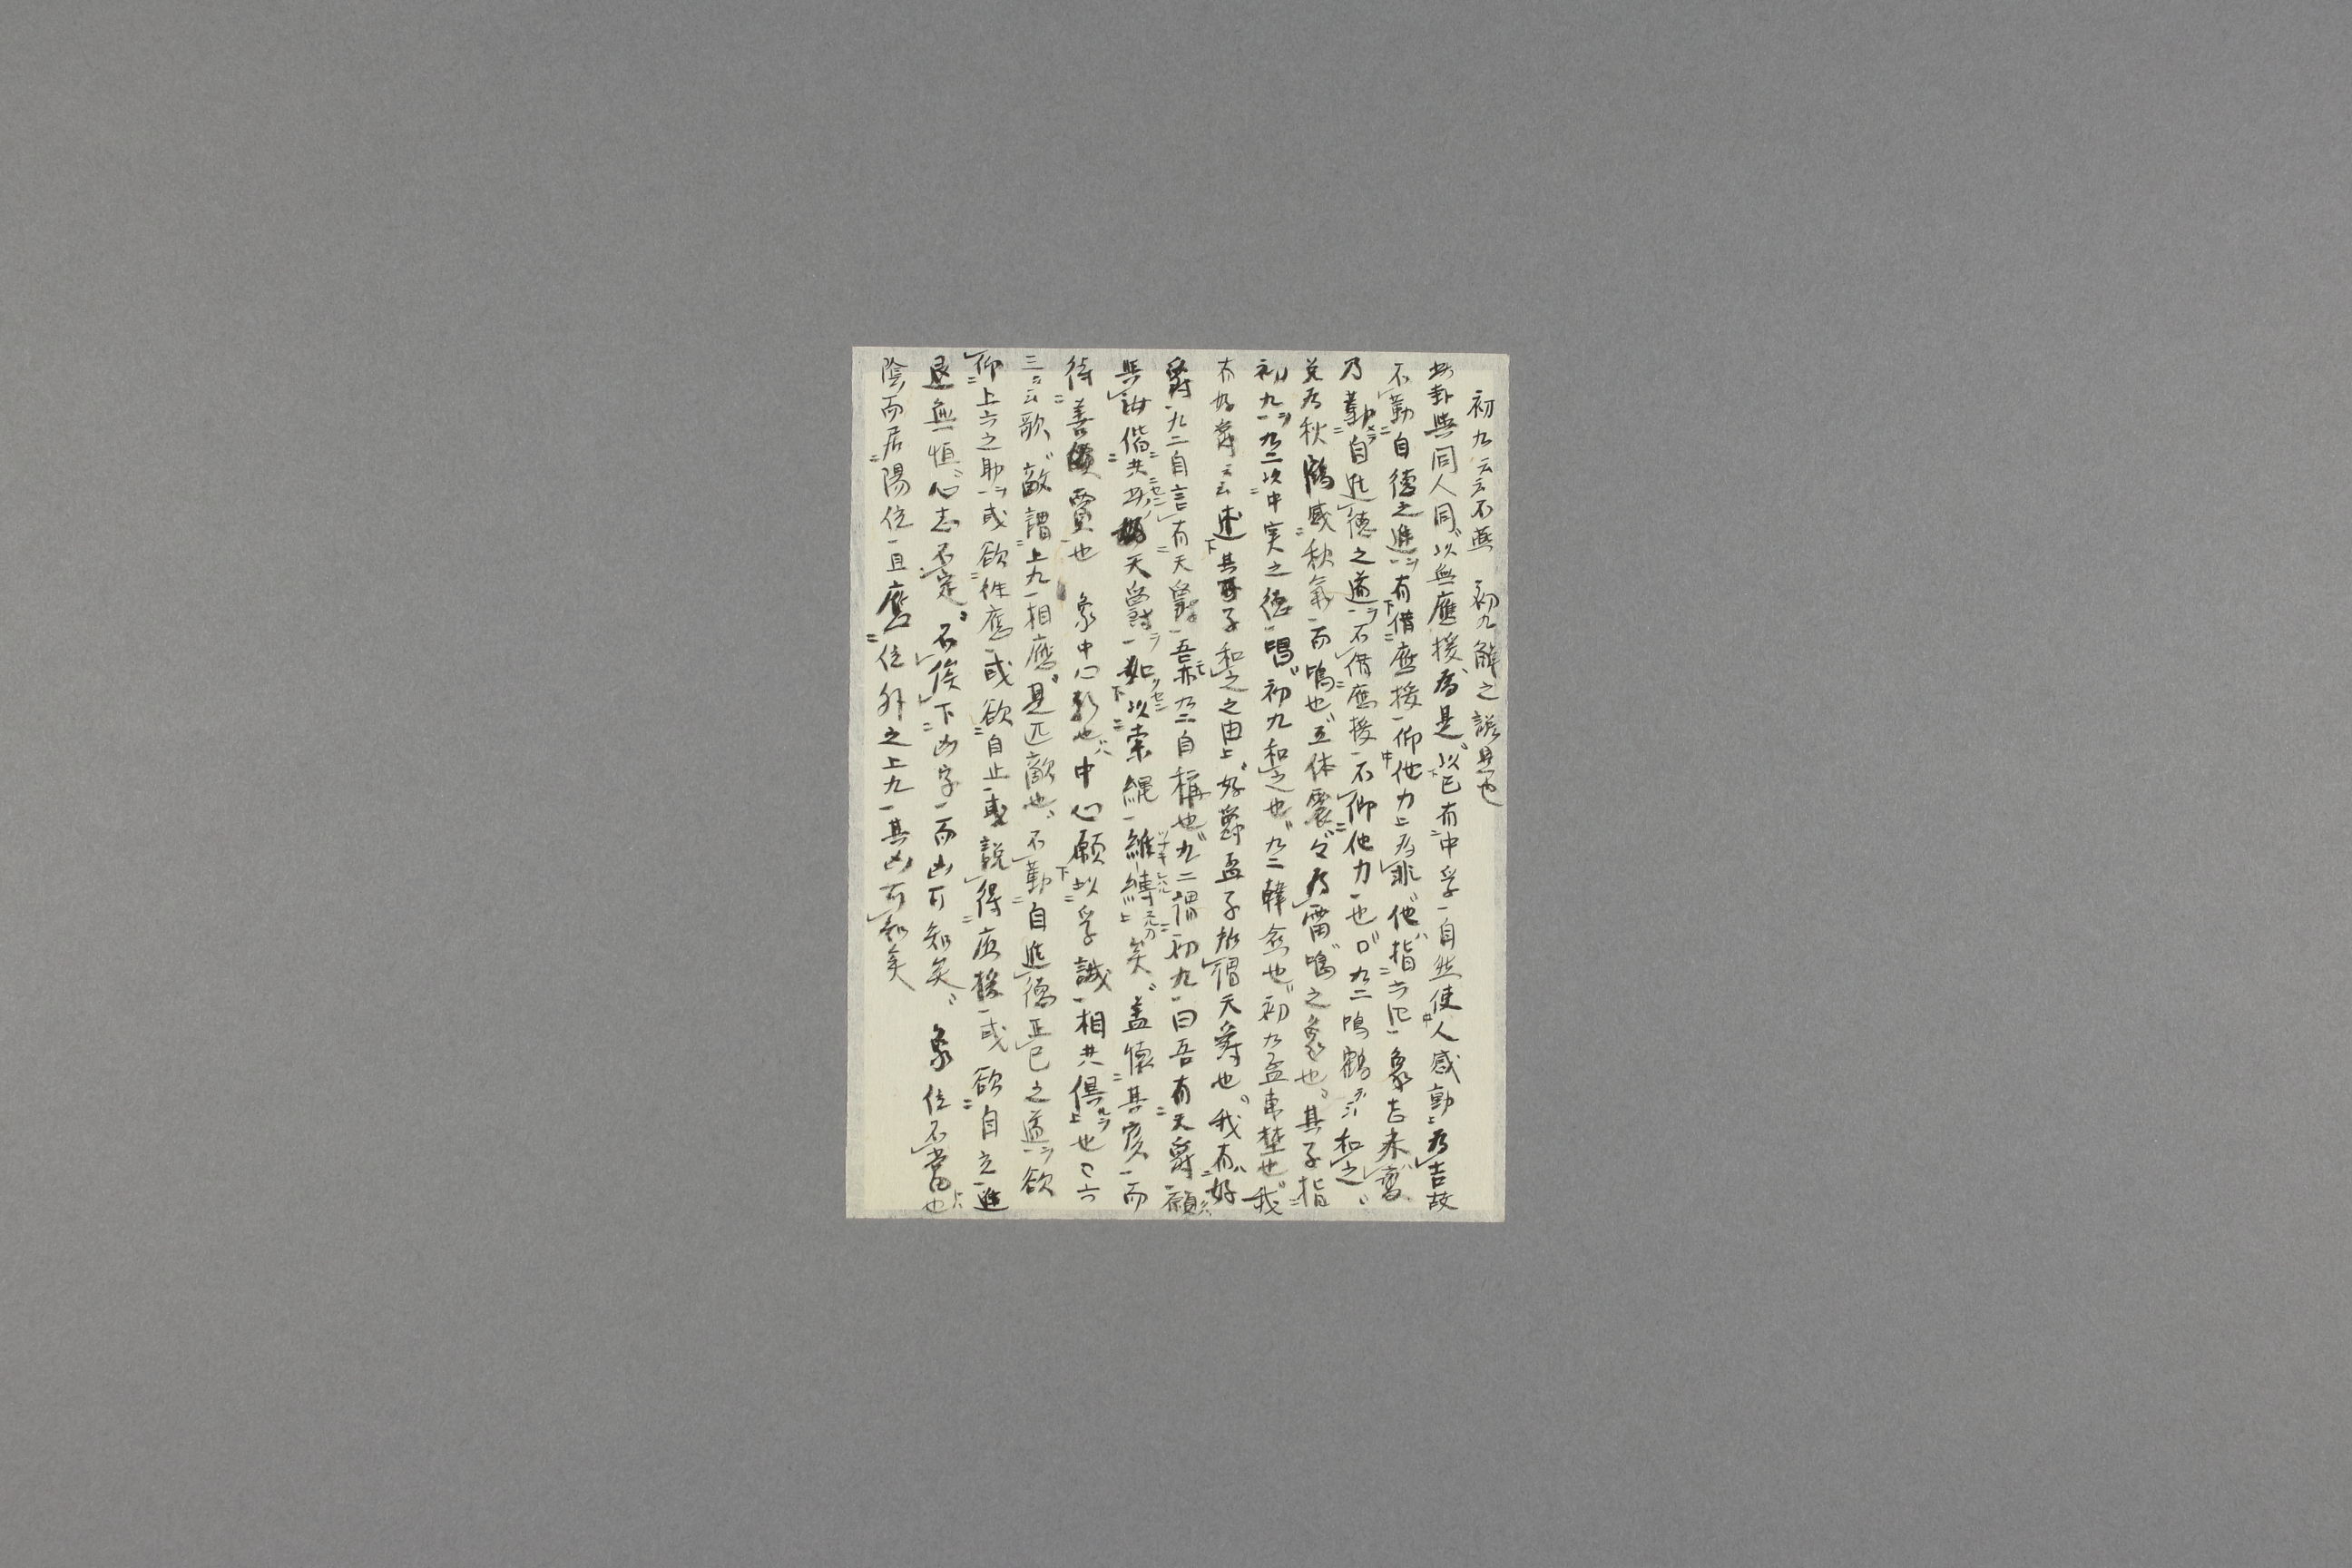 初九云云不燕　初九解之説是也
此卦與同人同以無應援為是以已有中孚一自然使人感動上為吉故
不勤自徳之進有借應援一仰他力上為非他指六四一象吉未変
乃勤自進徳之道一不借應援一不仰他力一也○九二鳴鶴云云和之
兌為秋鶴感秋氣一而鳴也互体震々為雷鳴之象也其子指
初九一九二以中実之徳一唱初九和之也九二韓　也初九孟東埜也我
有好爵云云述其子和之之由上好爵孟子所謂天爵也我有好
爵一九二自言有天爵一吾亦九二自稱也九二謂初九一曰吾有天爵一願
與汝偕共　天爵一如以索縄一維縛上矣蓋懐其寳一而
待善賈一也　象中心願也中心願以孚誠一相共倶上也○六
三云云歌敵謂上九一相應是匹敵也不勤自進徳正已之道欲
仰上六之助一或欲　應一或欲自止一或説得應援一或欲自立一進
退無恒心志不定不俟下凶字一而凶可知矣　象位不當也
陰而居陽位一且應位外之上九一其凶可知矣